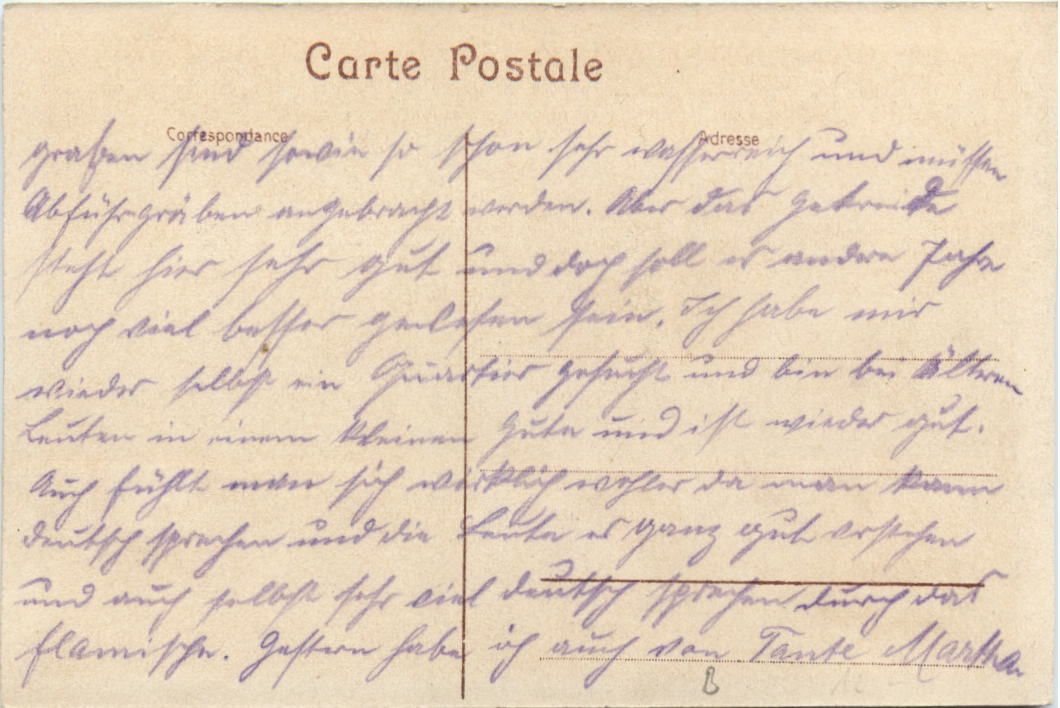 Carte Postale
Correspondance
Adresse
graben sind sowie so schon sehr wasserreich und müssen
Abführgräben angebracht werden. Aber das Getreide
steht hier sehr gut und doch soll es andere Jahre
noch viel besser gewesen sein. Ich habe mir
wieder selbst ein Quartier gesucht und bin bei älteren
Leuten in einem kleinen Gute und ist wieder gut.
Auch fühlt man sich wirklich wohler da man kann
deutsch sprechen und die Leute es ganz gut verstehen
und auch selbst sehr viel deutsch sprechen durch das
flamische. Gestern habe ich auch von Tante Martha
B